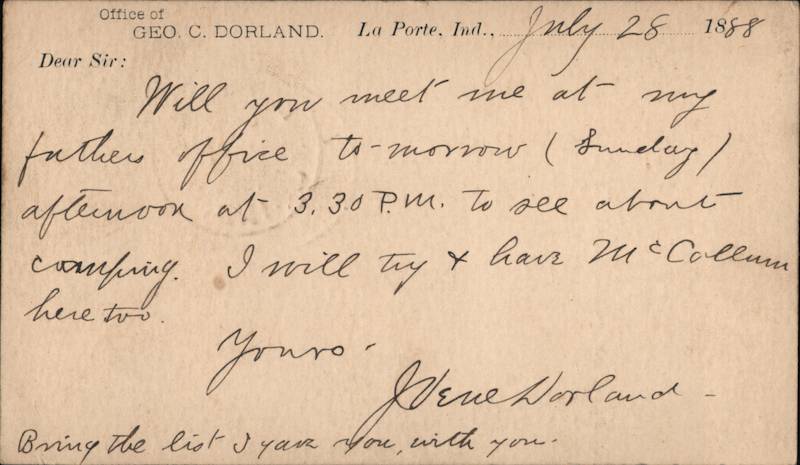 Office of
GEO. C. DORLAND. La Porte, Ind., July 28 1888
Dear Sir:
Will you meet me at my
fathers office to-morrow (Sunday)
afternoon at 3.30 P.M. to see about
camping. I will try & have McCollum
here too.
Yours-
J Vene Dorland-
Bring the list I gave you, with you.